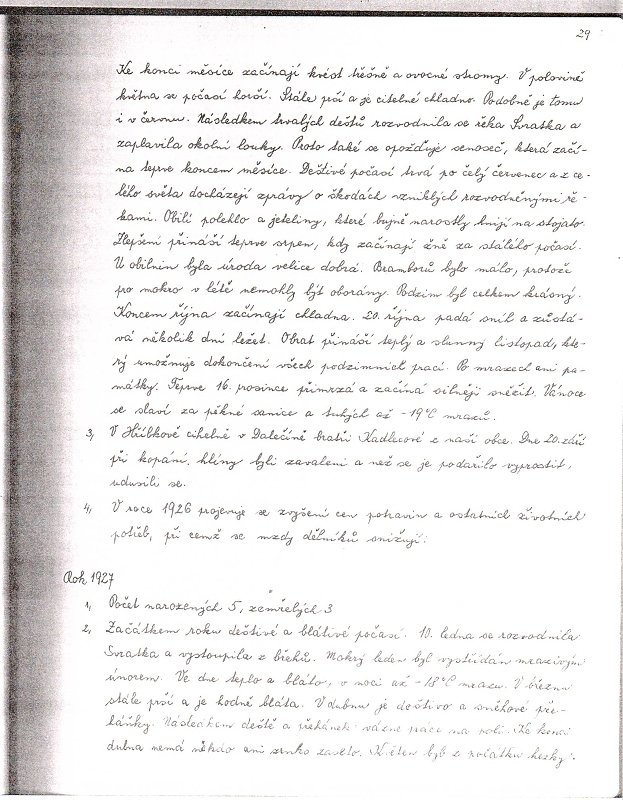 29
Ke konci měsíce začínají kvést třešně a ovocné stromy. V polovině
května se počasí horší. Stále prší a je citelné chladno. Podobně je tomu
i v červnu. Následkem trvalých dešťů rozvodnila se řeka Svratka a
zaplavila okolní louky. Proto také se opožďuje senoseč, která začí-
na teprve koncem měsíce. Deštivé počasí trvá po celý červenec a z ce-
lého světa docházejí zprávy o škodách vzniklých rozvodněnými ře-
kami. Obilí polehlo a jeteliny, které bujně narostly hnijí na stojato.
Zlepšení přináší teprve srpen, kdy začínají žně za stálého počasí.
U obilnin byla úroda velice dobrá. Bramborů bylo málo, protože
pro mokro v létě nemohly být oborány. Podzim byl celkem krásný.
Koncem října začínají chladna. 20. října padá sníh a zůstá-
vá několik dní ležet. Obrat přináší teplý a slunný listopad, kte-
rý umožnuje dokončení všech podzimních prací. Po mrazech ani pa-
mátky. Teprve 16. prosince přimrzá a začíná silněji sněžit. Vánoce
se slaví za pěkné sanice a tuhých až -19°C mrazů.
3, V Hříbkově cihelně v Dalečíně bratři Kadlecové z naší obce. Dne 20. září
při kopání hlíny byli zavaleni a než se je podařilo vyprostit,
udusili se.
4, V roce 1926 projevuje se zvýšení cen potravin a ostatních životních
potřeb, při čemž se mzdy dělníků snižují.
Rok 1927
1, Počet narozených 5, zemřelých 3
2, Začátkem roku deštivé a blátivé počasí. 10. ledna se rozvodnila
Svratka a vystoupila z břehů. Mokrý leden byl vystřídán mrazivým
únorem. Ve dne teplo a bláto, v noci až -18°C mrazu. V březnu
stále prší a je hodně bláta. V dubnu je deštivo a sněhové pře-
háňky. Následkem deště a přehánek vázne práce na poli. Ke konci
dubna nemá někdo ani zrnko zaseto. Květen byl z počátku hezký.